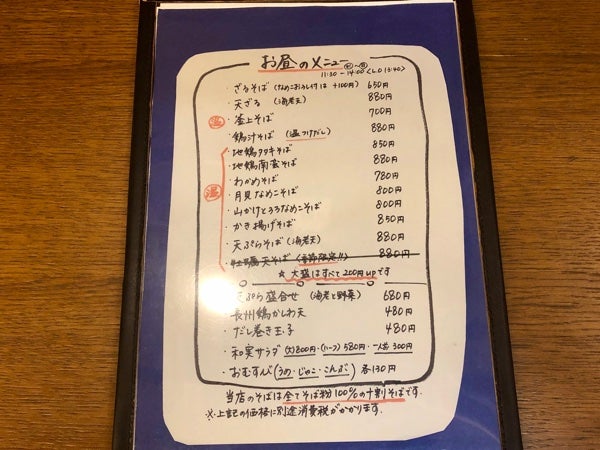 お昼のメニュー
11:30〜14:00 (L.O 13:40)
・ざるそば (なめこおろしそばは +100円) 650円
・天ざる (海老天) 880円
・釜上そば 700円
・鶏汁そば (温つけだし) 880円
・地鶏タタキそば 850円
・地鶏南蛮そば 880円
・わかめそば 780円
・月見なめこそば 800円
・山かけとろろなめこそば 800円
・かき揚げそば 850円
・天ぷらそば (海老天) 880円
天そば (季節限定!!) 880円
☆大盛はすべて200円upです
天ぷら盛合せ (海老と野菜) 680円
・長州鶏かしわ天 480円
・だし巻き玉子 480円
・和実サラダ (大)800円・(ハーフ)580円・一人前 300円
・おむすび (うめ・じゃこ・こんぶ) 各130円
当店のそばは全てそば粉100%の十割そばです.
※上記の価格に別途消費税がかかります.